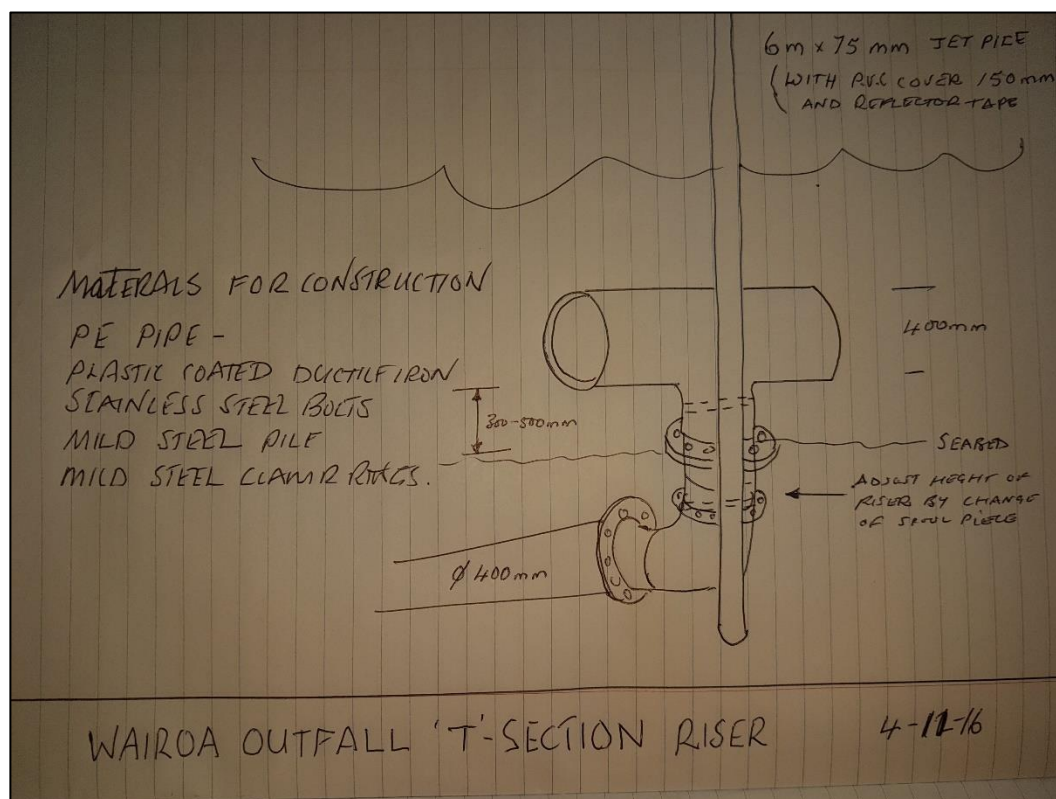 6m x 75mm JET PILE
(WITH P.V.C COVER 150mm
AND REFLECTOR TAPE
MATERALS FOR CONSTRUCTION
PE PIPE -
PLASTIC COATED DUCTILE IRON
STAINLESS STEEL BOLTS
MILD STEEL PILE
MILD STEEL CLAMP RINGS.
400mm
300-500mm
SEABED
ADJUST HEIGHT OF
RISER BY CHANGE
OF SPOOL PIECE
Ø 400mm
WAIROA OUTFALL 'T'-SECTION RISER
4-11-16